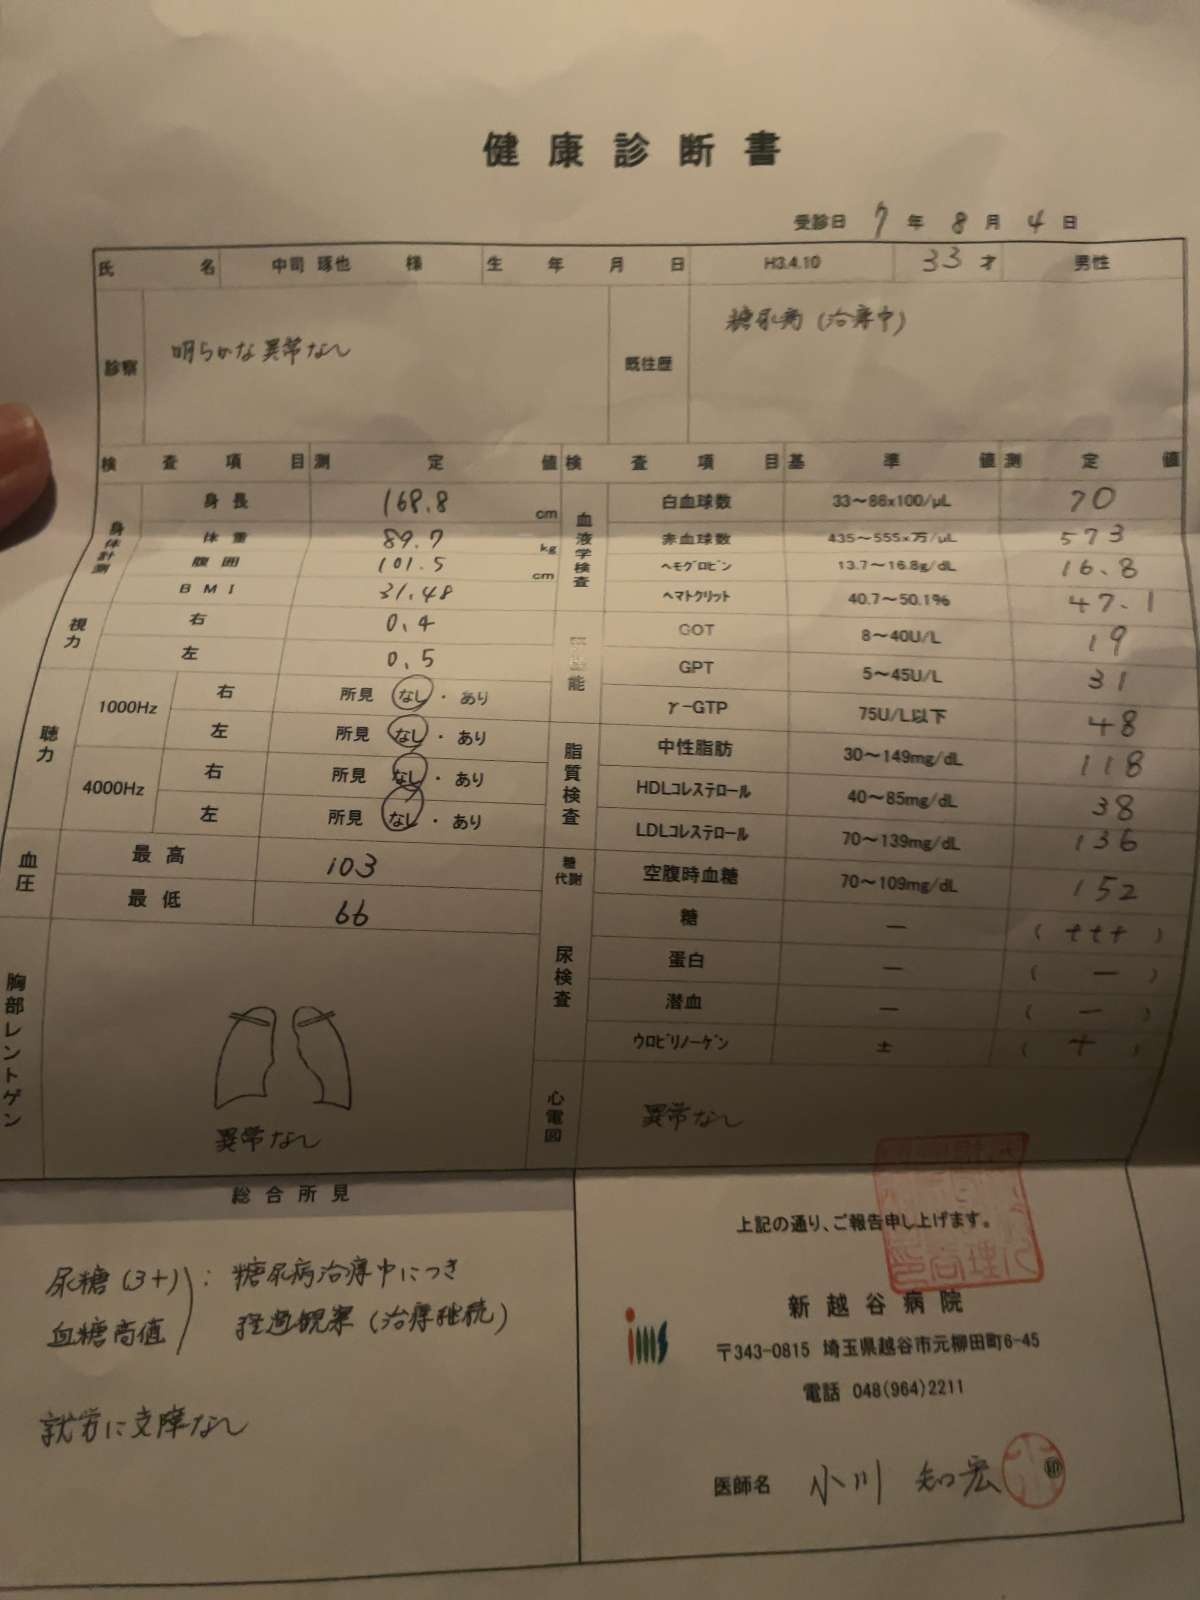 健康診断書
受診日 7年 8月 4日
氏名 中司 琢也 様 生年月日 H3.4.10 33才 男性
診察 明らかな異常なし 既往歴 糖尿病(治療中)
検査項目 測定値 検査項目 基準値 測定値
身体計測 身長 168.8 cm 血液学検査 白血球数 33~86x100/μL 70
体重 89.7 kg 赤血球数 435~555x万/μL 573
腹囲 101.5 cm ヘモグロビン 13.7~16.8g/dL 16.8
BMI 31.48 ヘマトクリット 40.7~50.1% 47.1
視力 右 0.4 能 GOT 8~40U/L 19
左 0.5 GPT 5~45U/L 31
聴力 1000Hz 右 所見 なし・あり γ-GTP 75U/L以下 48
左 所見 なし・あり 脂質検査 中性脂肪 30~149mg/dL 118
4000Hz 右 所見 なし・あり HDLコレステロール 40~85mg/dL 38
左 所見 なし・あり LDLコレステロール 70~139mg/dL 136
血圧 最高 103 糖代謝 空腹時血糖 70~109mg/dL 152
最低 66 尿検査 糖 - (+++)
蛋白 - (-)
潜血 - (-)
ウロビリノーゲン ± (+)
胸部レントゲン 異常なし 心電図 異常なし
総合所見
尿糖(3+)
血糖高値
: 糖尿病治療中につき
経過観察(治療継続)
就労に支障なし
上記の通り、ご報告申し上げます。
新越谷病院
ims
〒343-0815 埼玉県越谷市元柳田町6-45
電話 048(964)2211
医師名 小川 知宏 印